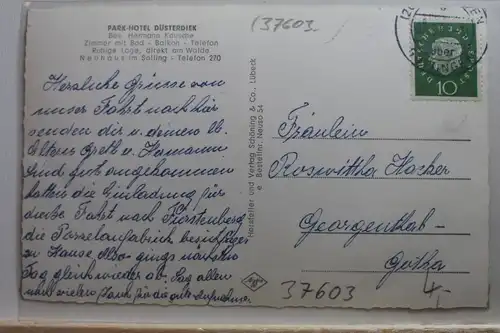 PARK-HOTEL DÜSTERDIEK
Bes. Hermann
Zimmer mit Bad - Balkon - Telefon
Ruhige Lage, direkt am Walde
Neuhaus im Solling - Telefon 270
(37603
10
Herzliche Grüsse von
unser Fahrt nach hier
senden dir u. deinen lb.
Eltern Greth u. Hermann
Sind gut angekommen
hatten die Einladung für
diese Fahrt nach Fürstenberg
die Porzelanfabrick
zu Hause. Also gings nächsten
Tag gleich wieder ab. Sag allen
vielen Dank für die gute Aufnahme
Hersteller und Verlag Schöning & Co., Lübeck
Bestellnr. Neuso 54
Agfa
Fräulein
Roswittha Hacker
Georgenthal
Gotha
37603
4,-